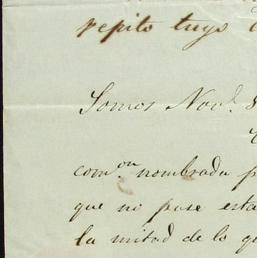 repito tuyo
Somos Nov.
com.on nombrada p
que no pase esta
la mitad de lo q